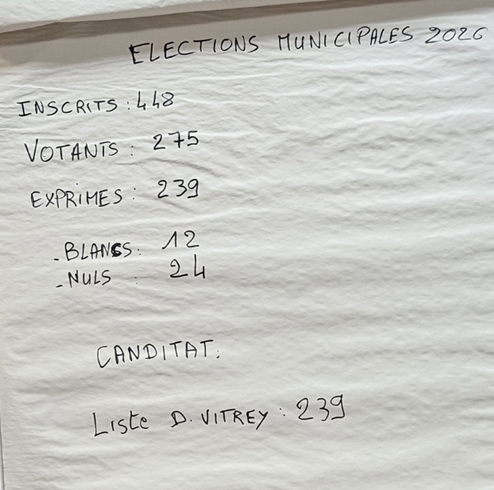 ELECTIONS MUNICIPALES 2026
INSCRITS : 448
VOTANTS : 275
EXPRIMES : 239
- BLANCS : 12
- NULS : 24
CANDITAT :
Liste D. VITREY : 239